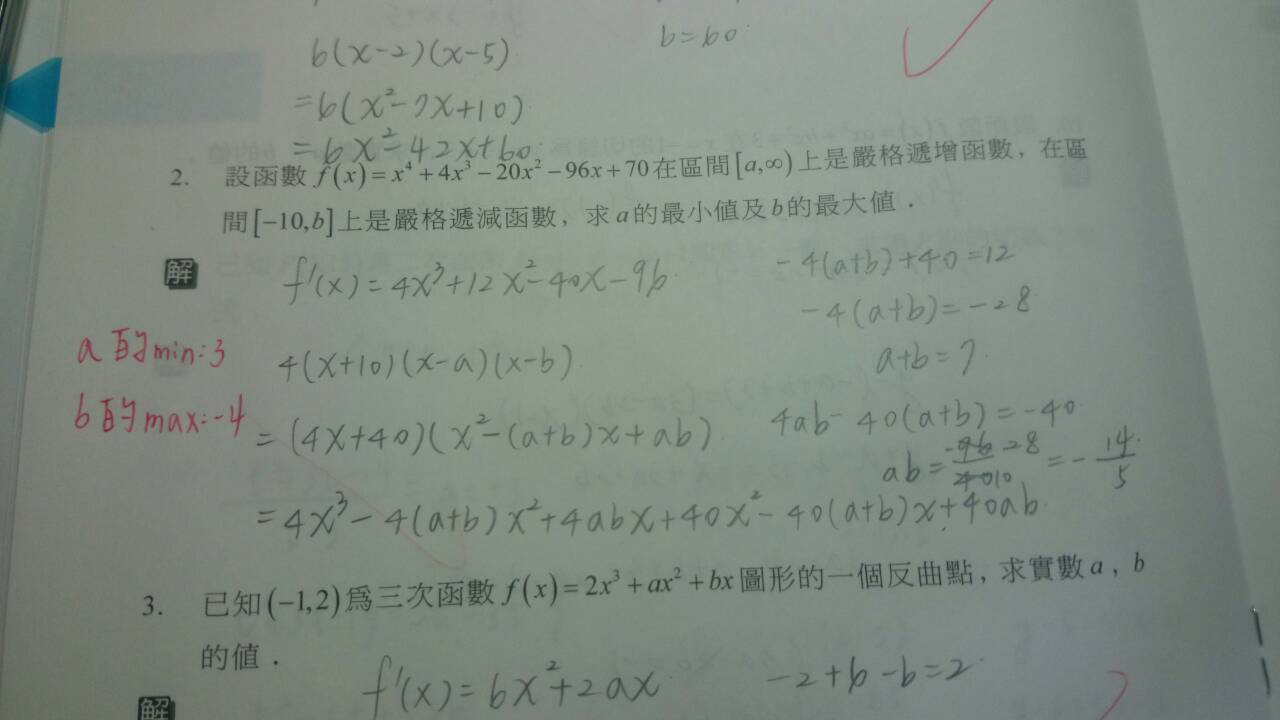 6(x-2)(x-5)
b=60
=6(x²-7x+10)
=6x²-42x+60
2. 設函數 f(x)=x⁴+4x³-20x²-96x+70 在區間 [a,∞) 上是嚴格遞增函數，在區
間 [-10,b] 上是嚴格遞減函數，求 a 的最小值及 b 的最大值．
解
f'(x)=4x³+12x²-40x-96
-4(a+b)+40=12
-4(a+b)=-28
a的min:3
4(x+10)(x-a)(x-b)
a+b=7
b的max:-4
=(4x+40)(x²-(a+b)x+ab)
4ab-40(a+b)=-40
ab= =-14/5
=4x³-4(a+b)x²+4abx+40x²-40(a+b)x+40ab
3. 已知 (-1,2) 爲三次函數 f(x)=2x³+ax²+bx 圖形的一個反曲點，求實數 a，b
的值．
解
f'(x)=6x²+2ax
-2+6-b=2